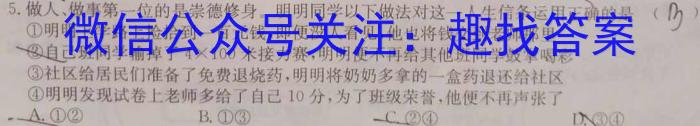 5.做人、做事第一位的是崇德修身。明明同学以下做法对这一人生信条运用正确的是 (B)
①明明
微信公众号关注：趣找答案
②自己班同学输掉了4×100米接力赛,明明便不再给其他班同学鼓掌喝彩
③社区给居民们准备了免费退烧药,明明将奶奶多拿的一盒药退还给社区
④明明发现试卷上老师多给了自己10分,为了班级荣誉,他便不再声张了
A.①② B.①③ C.②④ D.③④